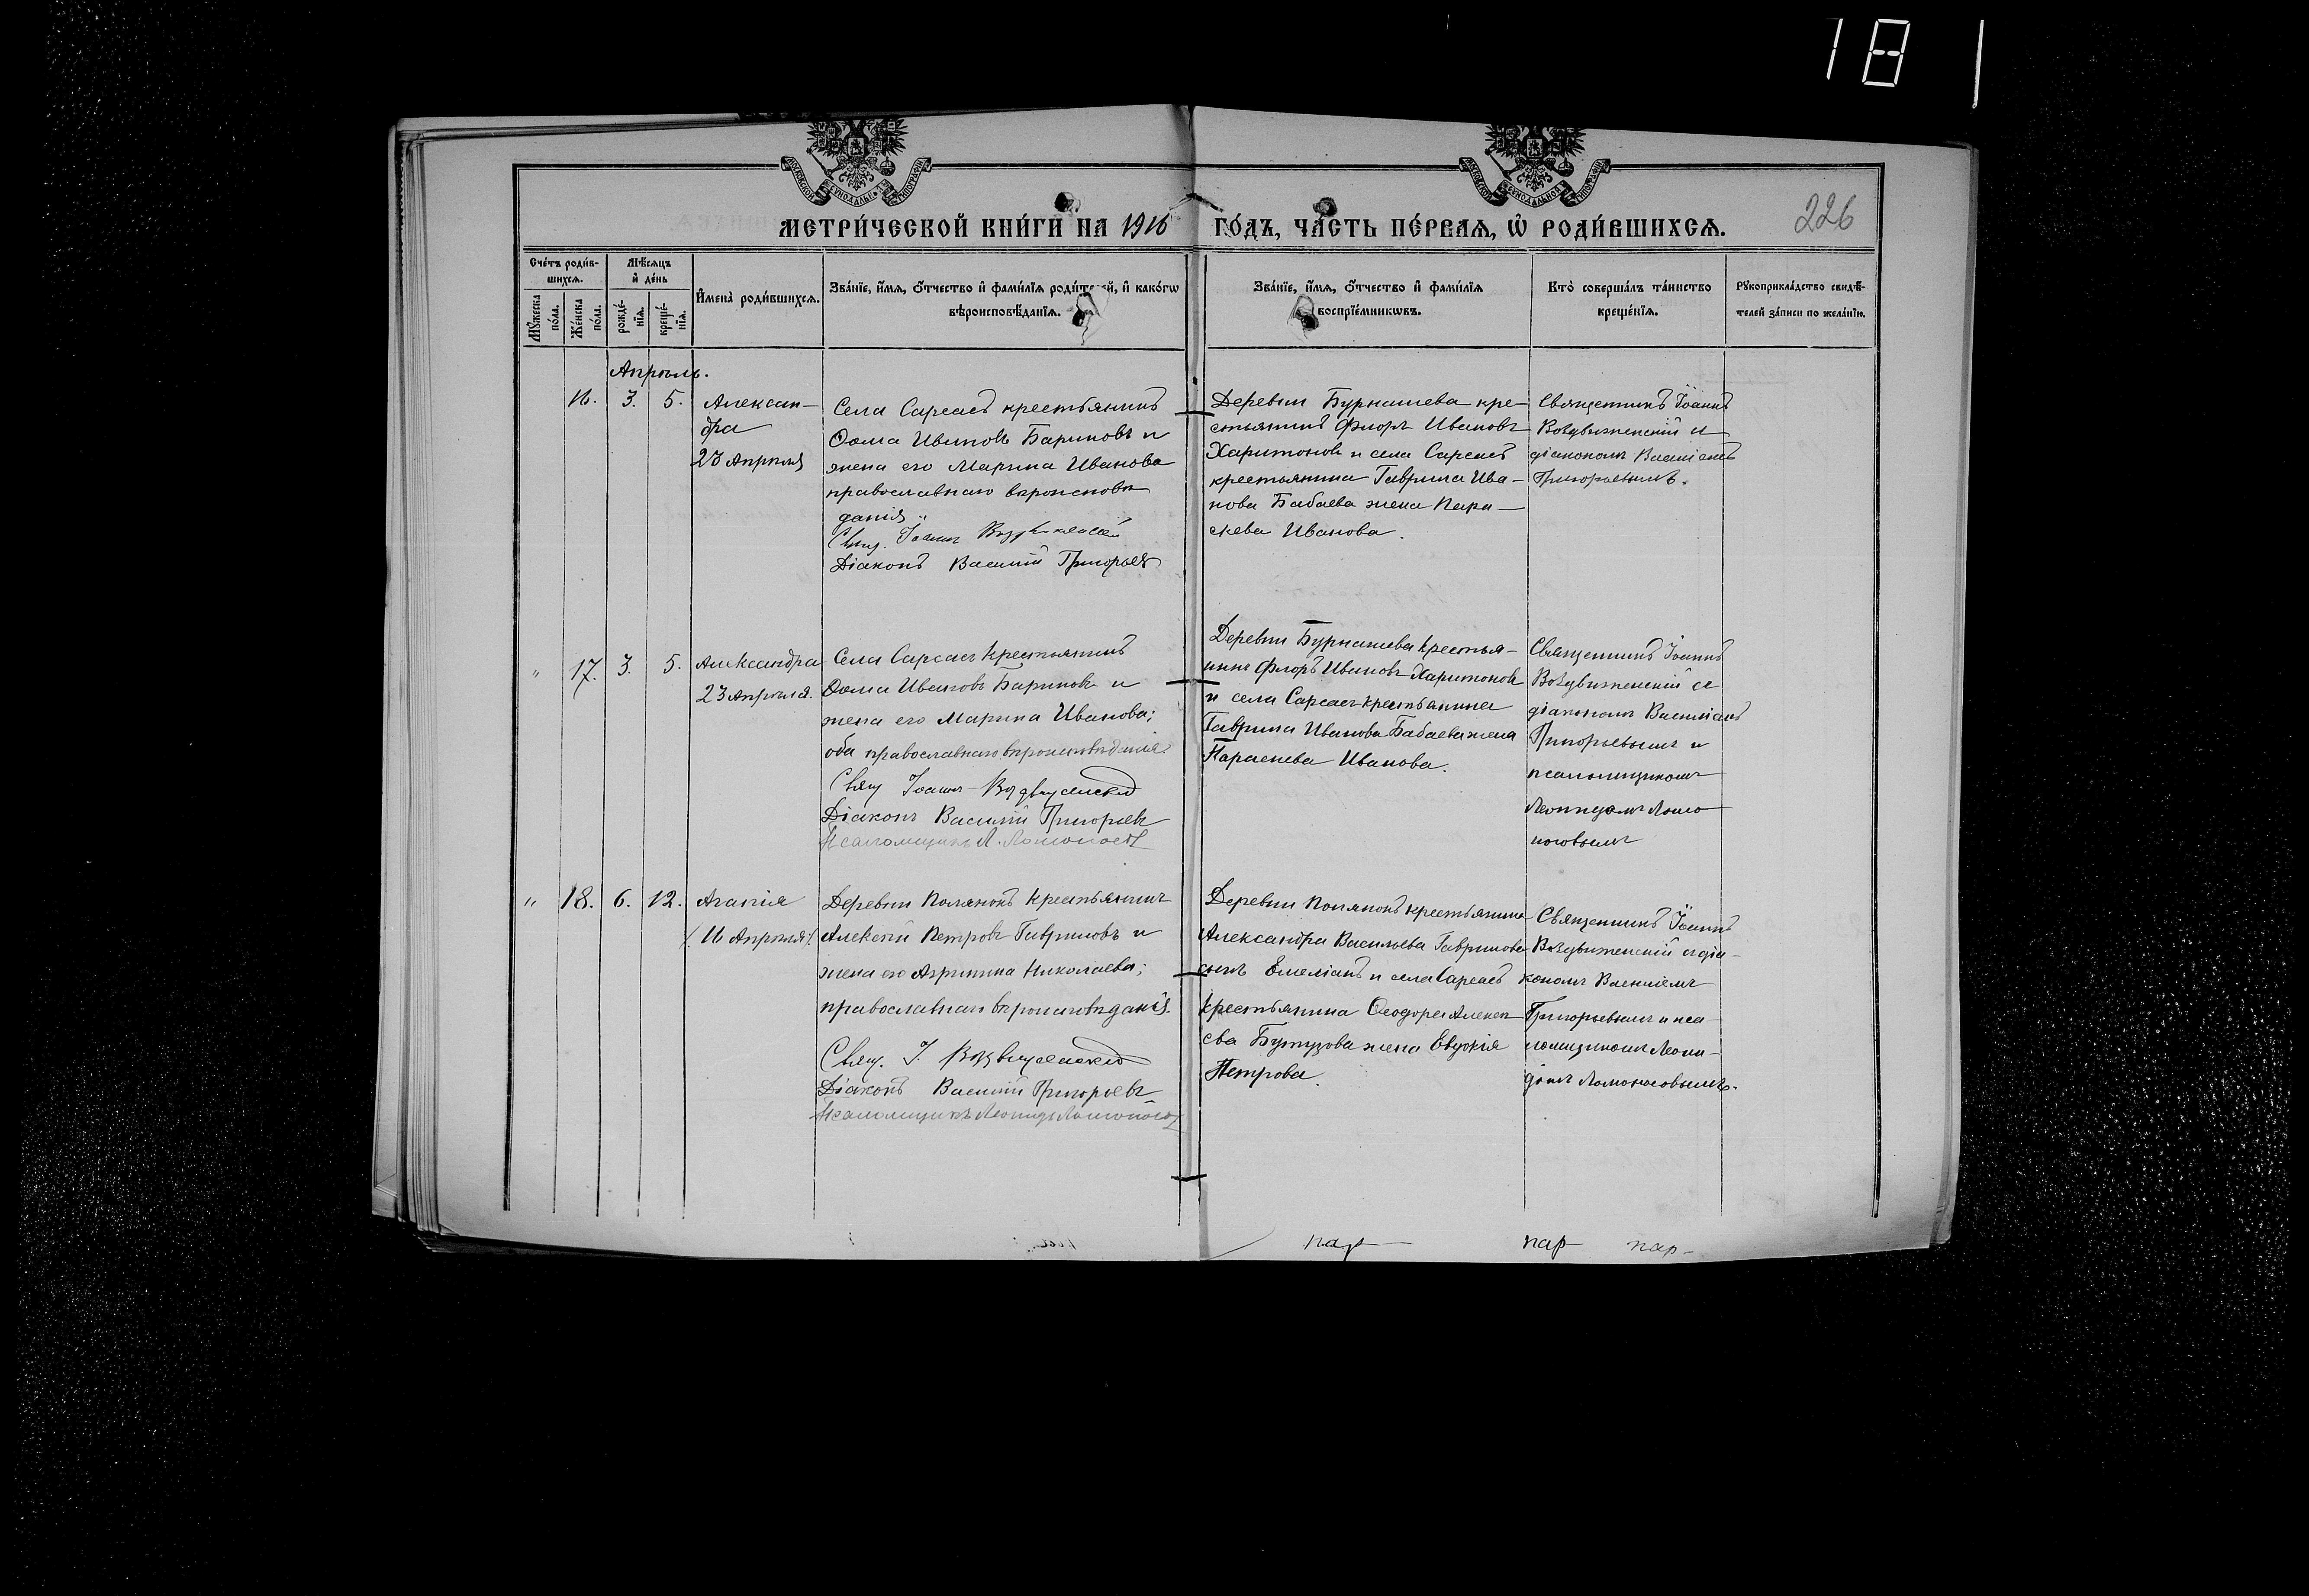 181
МОСКОВСКОЙ СѴНОДАЛЬНОЙ ТИПОГРАФІИ
МОСКОВСКОЙ СѴНОДАЛЬНОЙ ТИПОГРАФІИ
226
МЕТРИ́ЧЕСКОЙ КНИ́ГИ НА 1916 ГО́ДЪ, ЧА́СТЬ ПЕ́РВАЯ, Ѡ҆ РОДИ́ВШИХСЯ.
Сче́тъ роди́в-
шихся.
Мѣ́сяцъ
и҆ де́нь
Мꙋ́жеска
по́ла.
Же́нска
по́ла.
рожде́-
нїя.
креще́-
нїя.
И҆мена̀ роди́вшихся.
Зва́нїе, и҆́мя, ѻ҆́тчество и҆ фами́лїя роди́телей, и҆ како́гѡ
вѣроисповѣ́данїя.
Зва́нїе, и҆́мя, ѻ҆́тчество и҆ фами́лїя
воспрїе́мникѡвъ.
Кто̀ соверша́лъ та́инство
креще́нїя.
Рꙋкоприкла́дство свидѣ́-
телей за́писи по жела́нїю.
Апрѣль.
16. 3. 5.
Алексан-
дра
23 Апрѣля
Села Сарсасъ крестьянинъ
Ѳома Ивановъ Бариновъ и
жена его Марина Иванова
православнаго вѣроисповѣ
данія
Свящ. Іоаннъ Воздвиженскій
Діаконъ Василій Григорьевъ
Деревни Бурнашева кре-
стьянинъ Флоръ Ивановъ
Харитоновъ и села Сарсасъ
крестьянина Гаврила Ива-
нова Бабаева жена Пара-
скева Иванова.
Священникъ Іоаннъ
Воздвиженскій и
діакономъ Василіемъ
Григорьевымъ.
" 17. 3. 5.
Александра
23 Апрѣля.
Села Сарсасъ крестьянинъ
Ѳома Ивановъ Бариновъ и
жена его Марина Иванова;
оба православнаго вѣроисповѣданія
Свящ Іоаннъ Воздвиженскій
Діаконъ Василій Григорьевъ
Псаломщикъ Л. Ломоносовъ
Деревни Бурнашева крестья-
нинъ Флоръ Ивановъ Харитоновъ
и села Сарсасъ крестьянина
Гаврила Иванова Бабаева жена
Параскева Иванова.
Священникъ Іоаннъ
Воздвиженскій и
діакономъ Василіемъ
Григорьевымъ и
псаломщикомъ
Леонидомъ Ломо
носовымъ
" 18. 6. 12.
Агапія
(16 Апрѣля).
Деревни Полянокъ крестьянинъ
Алексѣй Петровъ Гавриловъ и
жена его Агрипина Николаева;
православнаго вѣроисповѣданія.
Свящ. І. Воздвиженскій
Діаконъ Василій Григорьевъ
Псаломщикъ Леонидъ Ломоносовъ
Деревни Полянокъ крестьянина
Александра Васильева Гаврилова
сынъ Емеліанъ и села Сарсасъ
крестьянина Ѳеодора Алексѣ
ева Бутузова жена Евдокія
Петрова.
Священникъ Іоаннъ
Воздвиженскій и діа-
кономъ Василіемъ
Григорьевымъ и пса
ломщикомъ Леони-
домъ Ломоносовымъ.
пар пар пар